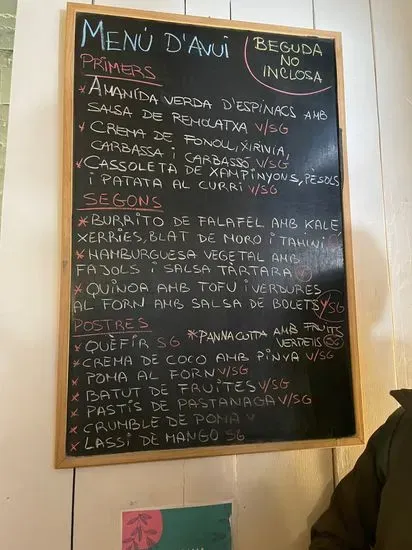 MENÚ D'AVUI
BEGUDA
NO
INCLOSA
PRIMERS
* AMANIDA VERDA D'ESPINACS AMB
SALSA DE REMOLATXA V/SG
* CREMA DE FONOLL, XIRIVIA,
CARBASSA I CARBASSÓ V/SG
* CASSOLETA DE XAMPINYONS, PÈSOLS
I PATATA AL CURRI V/SG
SEGONS
* BURRITO DE FALAFEL AMB KALE,
XERRIES, BLAT DE MORO I TAHINI
* HAMBURGUESA VEGETAL AMB
FAJOLS I SALSA TÀRTARA V
* QUINOA AMB TOFU I VERDURES
AL FORN AMB SALSA DE BOLETS V/SG
POSTRES
* QUÈFIR SG
* PANNACOTTA AMB FRUITS
VERMELLS SG
* CREMA DE COCO AMB PINYA V/SG
* POMA AL FORN V/SG
* BATUT DE FRUITES V/SG
* PASTÍS DE PASTANAGA V/SG
* CRUMBLE DE POMA V
* LASSI DE MANGO SG